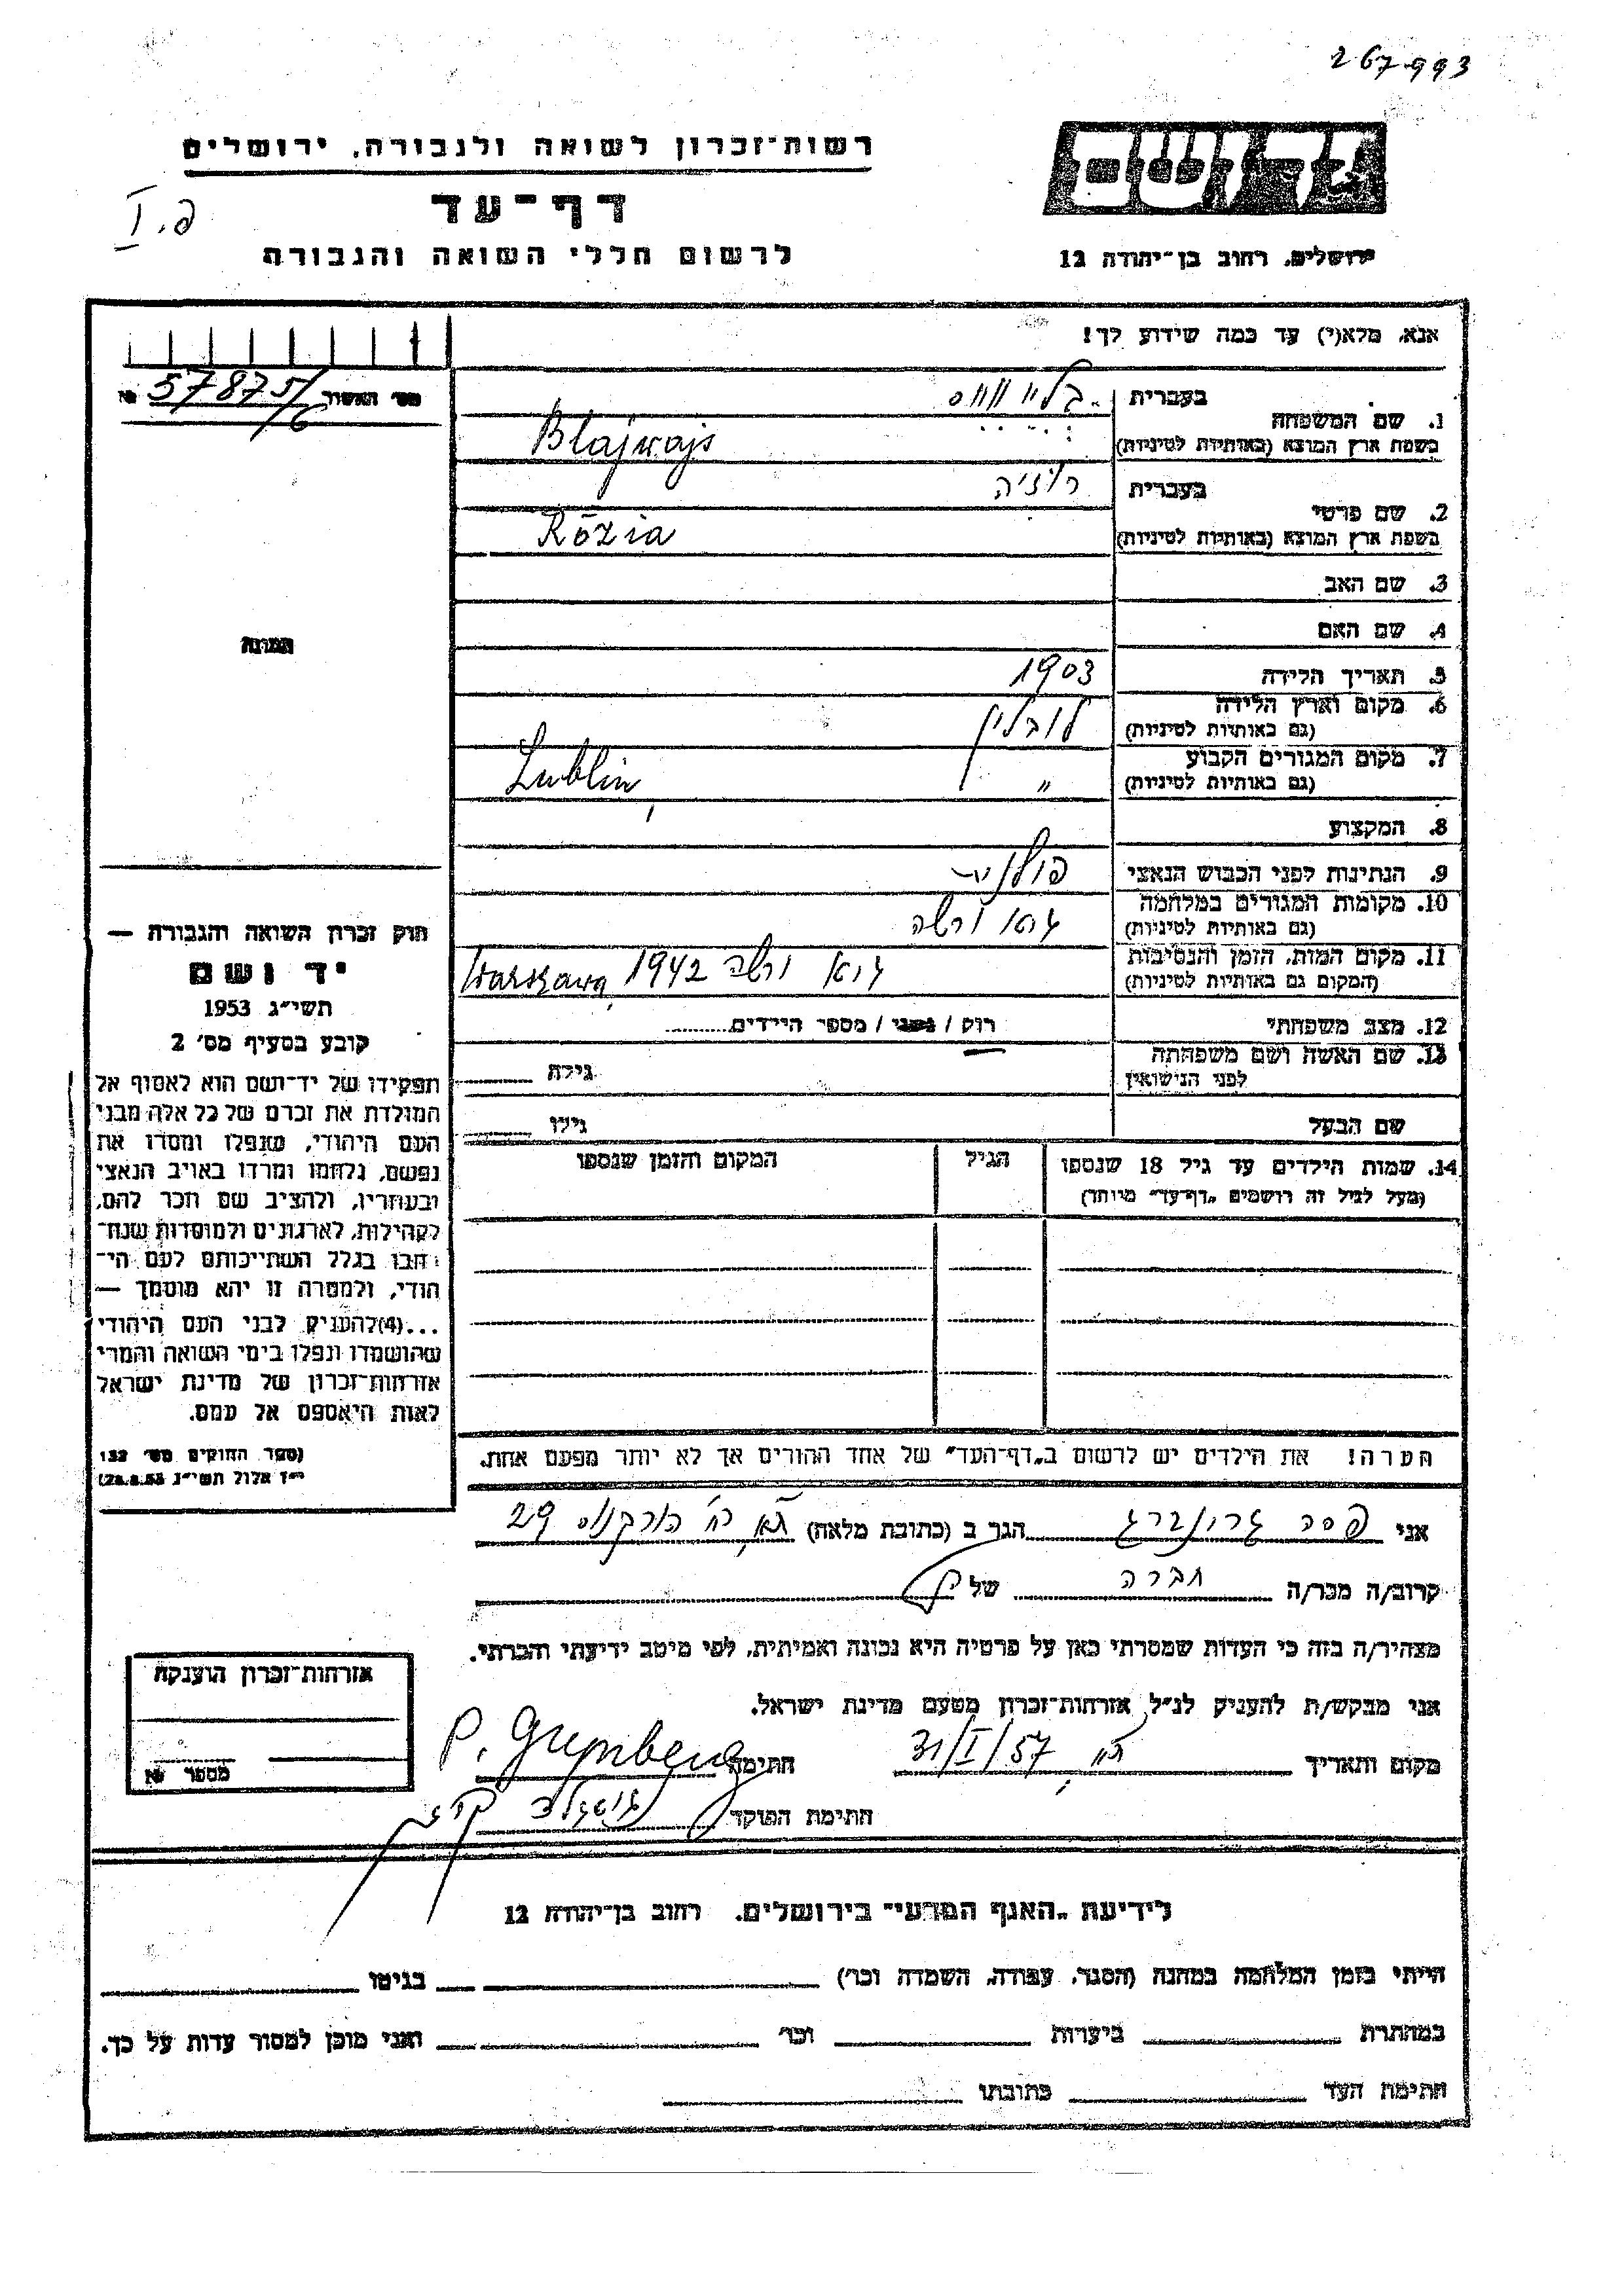 267993
רשות־זכרון לשואה ולגבורה, ירושלים
דף־עד
לרשום חללי השואה והגבורה
פ. I
יד ושם
ירושלים, רחוב בן־יהודה 12
אנא, מלא(י) עד כמה שידוע לך!
מס׳ האשור № 57875/6
1. שם המשפחה
בעברית בלייווייס
בשפת ארץ המוצא (באותיות לטיניות) Blajwajs
2. שם פרטי
בעברית רוזיה
בשפת ארץ המוצא (באותיות לטיניות) Rózia
3. שם האב
4. שם האם
5. תאריך הלידה 1903
6. מקום וארץ הלידה לובלין
(גם באותיות לטיניות)
7. מקום המגורים הקבוע
(גם באותיות לטיניות) " Lublin,
8. המקצוע
9. הנתינות לפני הכבוש הנאצי
10. מקומות המגורים במלחמה
(גם באותיות לטיניות) גטו ורשה
11. מקום המות, הזמן והנסיבות
(המקום גם באותיות לטיניות) גטו ורשה 1942 Warszawa,
12. מצב משפחתי רווק / נשוי / מספר הילדים
13. שם האשה ושם משפחתה
לפני הנישואין גילה
שם הבעל גילו
14. שמות הילדים עד גיל 18 שנספו הגיל המקום והזמן שנספו
(מעל לגיל זה רושמים „דף־עד" מיוחד)
הערה! את הילדים יש לרשום ב„דף־העד" של אחד ההורים אך לא יותר מפעם אחת.
תמונה
חוק זכרון השואה והגבורה —
יד ושם
תשי״ג 1953
קובע בסעיף מס׳ 2
תפקידו של יד־ושם הוא לאסוף אל
המולדת את זכרם של כל אלה מבני
העם היהודי, שנפלו ומסרו את
נפשם, נלחמו ומרדו באויב הנאצי
ובעוזריו, ולהציב שם וזכר להם,
לקהילות, לארגונים ולמוסדות שנח־
רבו בגלל השתייכותם לעם הי־
הודי, ולמטרה זו יהא מוסמך —
...(4)להעניק לבני העם היהודי
שהושמדו ונפלו בימי השואה והמרי
אזרחות־זכרון של מדינת ישראל
לאות היאספם אל עמם.
(ספר החוקים מס׳ 132
י״ז אלול תשי״ג 28.8.53)
אני פסה גרונברג הגר ב (כתובת מלאה) הורקנוס 29
קרוב/ה מכר/ה חברה של
מצהיר/ה בזה כי העדות שמסרתי כאן על פרטיה היא נכונה ואמיתית, לפי מיטב ידיעתי והכרתי.
אני מבקש/ת להעניק לנ״ל אזרחות־זכרון מטעם מדינת ישראל.
מקום ותאריך 31/I/57 חתימה P. Grynberg
חתימת הפוקד
אזרחות־זכרון הוענקה
מספר №
לידיעת „האגף המדעי" בירושלים, רחוב בן־יהודה 12
הייתי בזמן המלחמה במחנה (הסגר, עבודה, השמדה וכו׳) בגיטו
במחתרת ביערות וכו׳ ואני מוכן למסור עדות על כך.
חתימת העד כתובתו